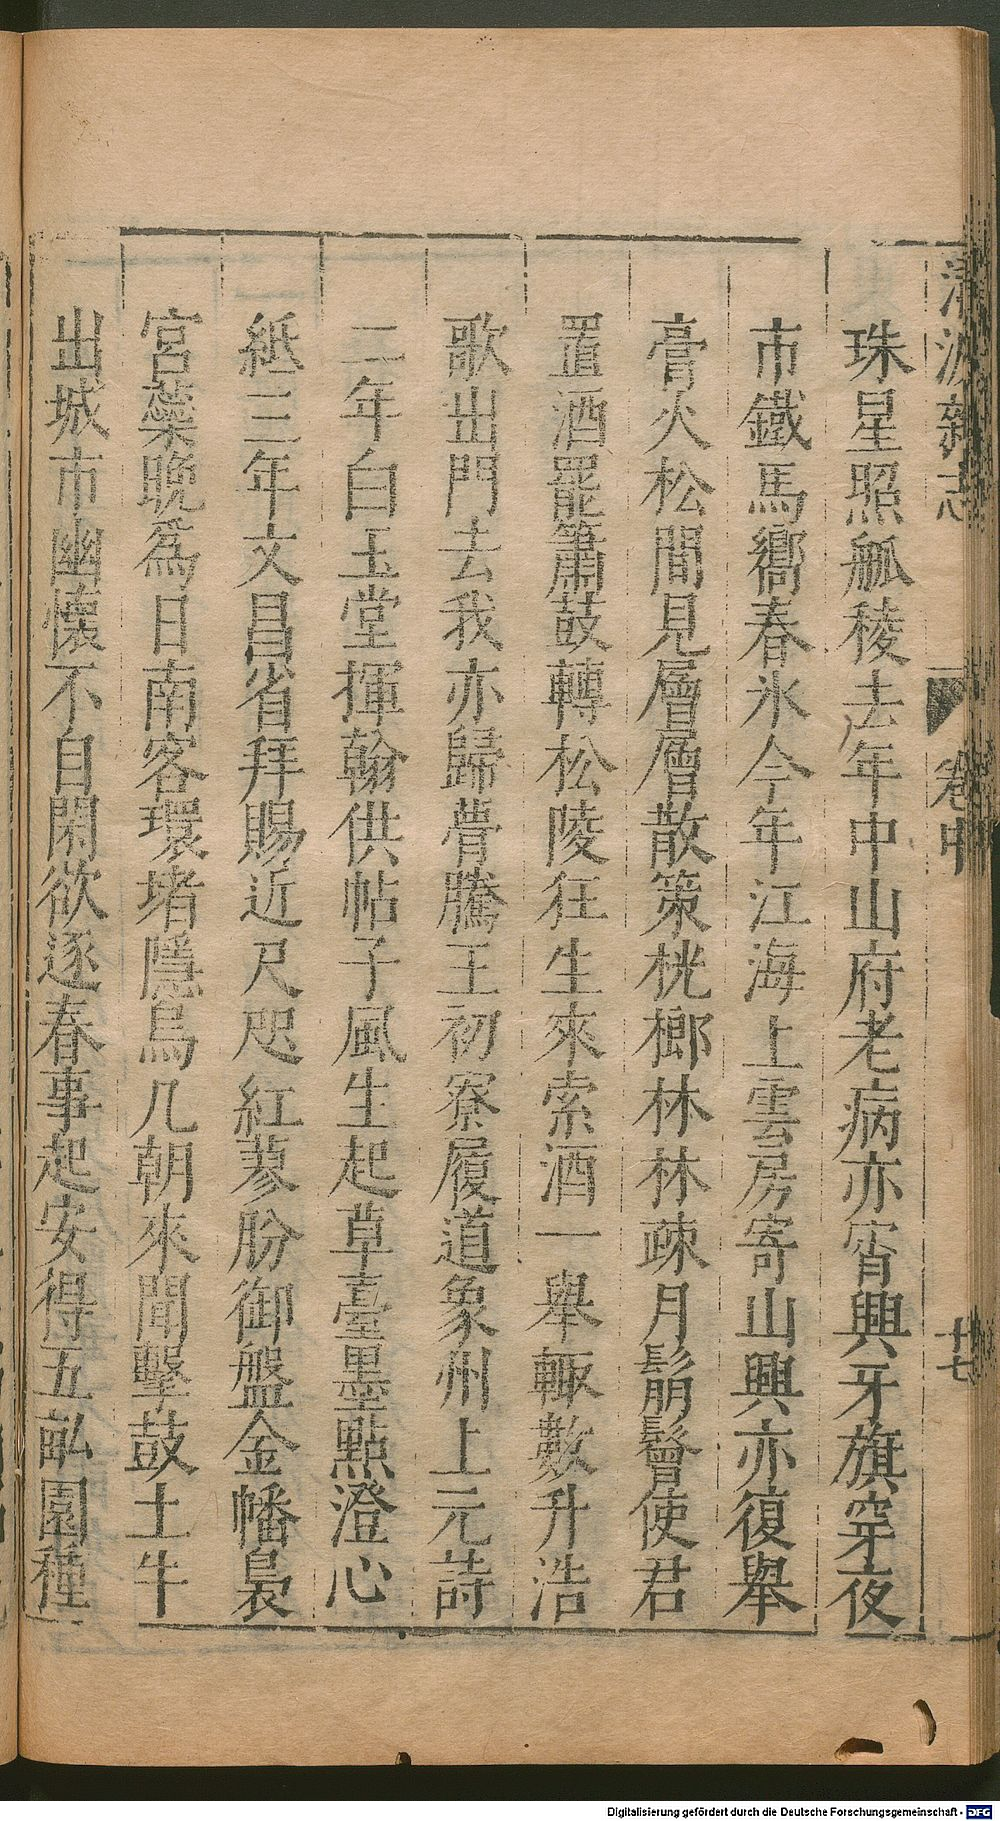 珠星照觚稜去年中山府老病亦宵興牙旗穿夜
市鐵馬嚮春氷今年江海上雲房寄山興亦復舉
膏火松間見層層散策桄榔林林疎月鬅鬙使君
置酒罷簫鼓轉松陵狂生來索酒一舉輙數升浩
歌出門去我亦歸瞢騰王初寮履道象州上元詩
二年白玉堂揮翰供帖子風生起草臺墨點澄心
紙三年文昌省拜賜近尺咫紅蓼肦御盤金幡裊
宮蘂晚爲日南客環堵隱烏几朝來聞擊鼓土牛
出城市幽懷不自閑欲逐春事起安得五畝園種
清波雜志
卷中
十七
Digitalisierung gefördert durch die Deutsche Forschungsgemeinschaft - DFG